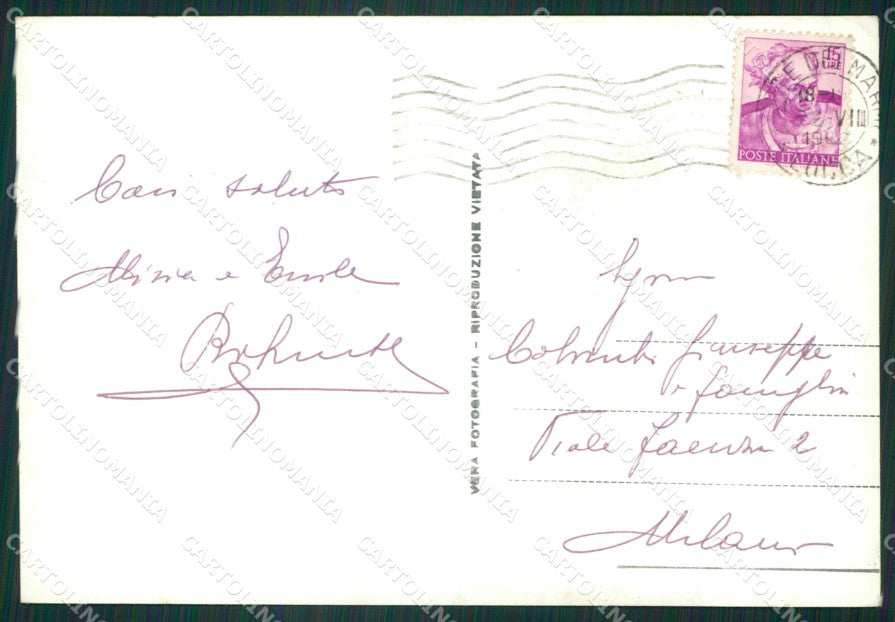 Cari saluti
Misia e Emilie
VERA FOTOGRAFIA - RIPRODUZIONE VIETATA
15
LIRE
POSTE ITALIANE
MARMI
18
VIII
LUCCA
Sigg.
Colombi Giuseppe
e famiglia
Viale Faenza 2
Milano
CARTOLINOMANIA